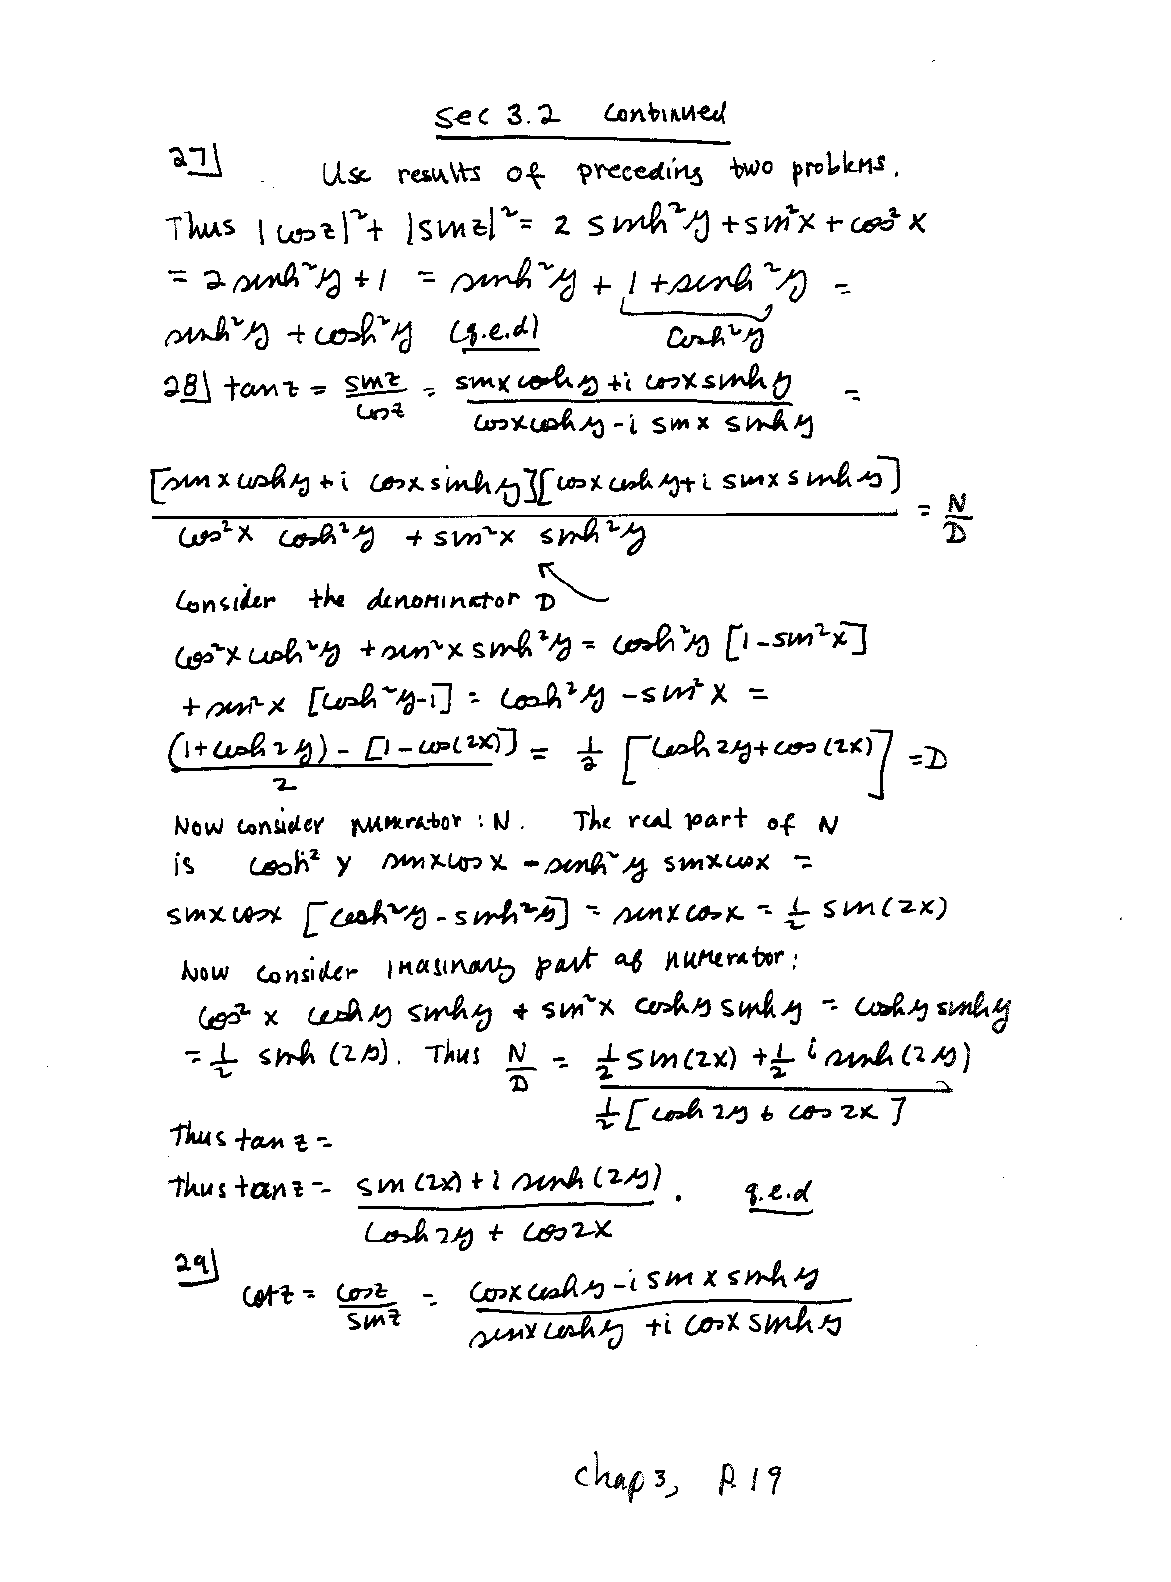 Sec 3.2 Continued
27] Use results of preceding two problems.
Thus |cos z|² + |sin z|² = 2 sinh²y + sin²x + cos²x
= 2 sinh²y + 1 = sinh²y + 1 + sinh²y =
sinh²y + cosh²y (q.e.d) cosh²y
28] tan z = sin z / cos z = (sin x cosh y + i cos x sinh y) / (cos x cosh y - i sin x sinh y) =
[sin x cosh y + i cos x sinh y][cos x cosh y + i sin x sinh y] / (cos²x cosh²y + sin²x sinh²y) = N/D
Consider the denominator D
cos²x cosh²y + sin²x sinh²y = cosh²y [1 - sin²x]
+ sin²x [cosh²y - 1] = cosh²y - sin²x =
((1 + cosh 2y) - [1 - cos(2x)]) / 2 = 1/2 [cosh 2y + cos(2x)] = D
Now consider numerator : N. The real part of N
is cosh² y sin x cos x - sinh²y sin x cos x =
sin x cos x [cosh²y - sinh²y] = sin x cos x = 1/2 sin(2x)
Now consider imaginary part of numerator:
cos² x cosh y sinh y + sin²x cosh y sinh y = cosh y sinh y
= 1/2 sinh (2y). Thus N/D = (1/2 sin(2x) + 1/2 i sinh(2y)) / (1/2 [cosh 2y + cos 2x])
Thus tan z =
Thus tan z = (sin(2x) + i sinh(2y)) / (cosh 2y + cos 2x) . q.e.d
29] cot z = cos z / sin z = (cos x cosh y - i sin x sinh y) / (sin x cosh y + i cos x sinh y)
Chap 3, p. 19